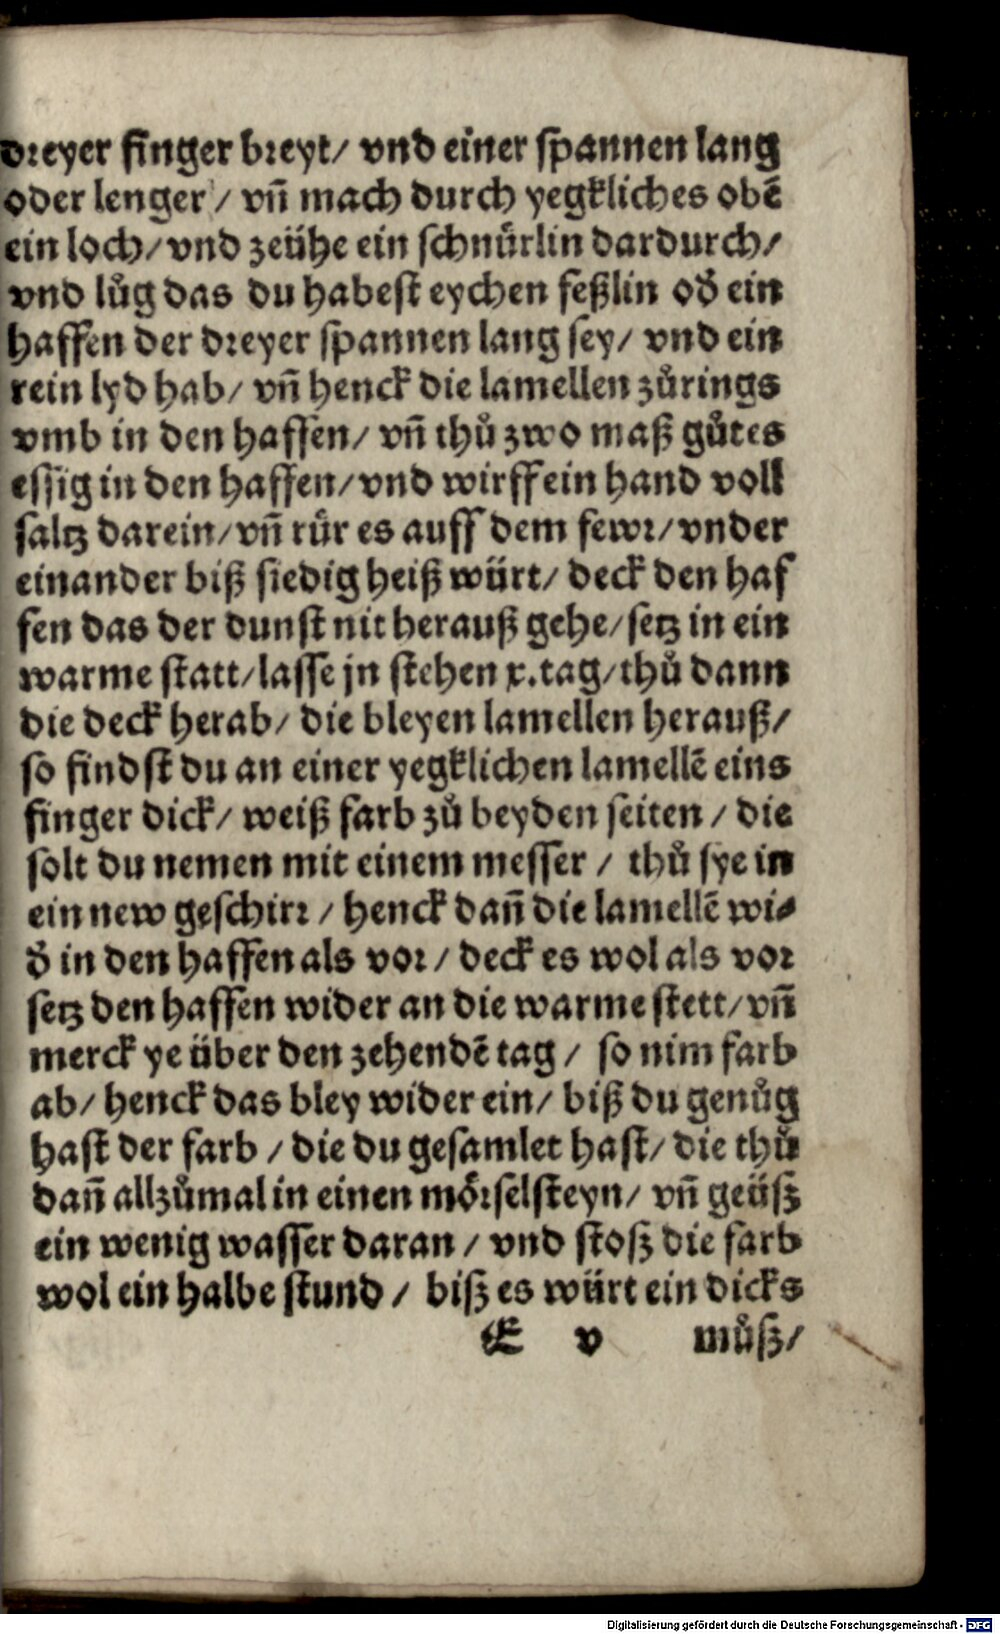 dreyer finger breyt/ vnd einer spannen lang
oder lenger / vñ mach durch yegkliches obẽ
ein loch/ vnd zeühe ein schnürlin dardurch/
vnd lůg das du habest eychen feßlin oð ein
haffen der dreyer spannen lang sey/ vnd ein
rein lyd hab/ vñ henck die lamellen zůrings
vmb in den haffen/ vñ thů zwo maß gůtes
essig in den haffen/ vnd wirff ein hand voll
saltz darein/ vñ rür es auff dem fewr/ vnder
einander biß siedig heiß würt/ deck den haf
fen das der dunst nit herauß gehe/ setz in ein
warme statt/ lasse jn stehen x. tag/ thů dann
die deck herab/ die bleyen lamellen herauß/
so findst du an einer yegklichen lamellẽ eins
finger dick/ weiß farb zů beyden seiten / die
solt du nemen mit einem messer / thů sye in
ein new geschirr / henck dañ die lamellẽ wi⸗
ð in den haffen als vor/ deck es wol als vor
setz den haffen wider an die warme stett/ vñ
merck ye über den zehendẽ tag / so nim farb
ab/ henck das bley wider ein/ biß du genůg
hast der farb / die du gesamlet hast/ die thů
dañ allzůmal in einen mörselsteyn/ vñ geüsz
ein wenig wasser daran / vnd stosz die farb
wol ein halbe stund / bisz es würt ein dicks
E v můsz/
Digitalisierung gefördert durch die Deutsche Forschungsgemeinschaft - DFG